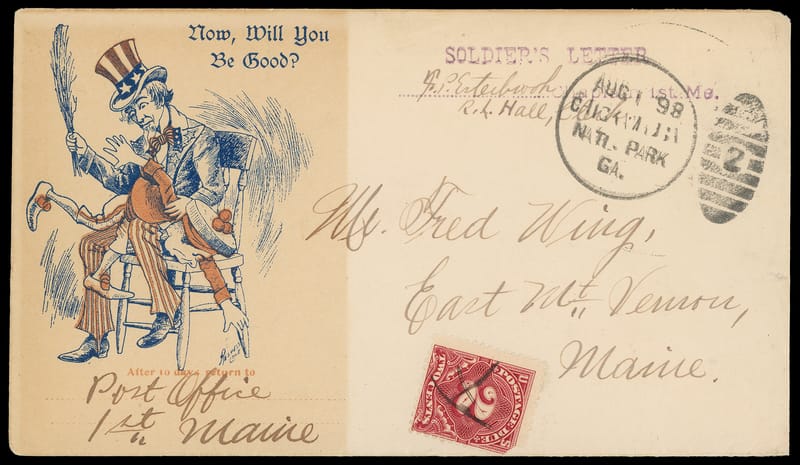 Now, Will You
Be Good?
SOLDIER'S LETTER
F.S. Esterbrook Chaplain 1st. Me.
R.L. Hall,
AUG 1 '98
CHICKAMAUGA
NAT'L. PARK
GA.
2
Mr. Fred Wing,
East Mt. Vernon,
Maine.
After 10 days return to
Post Office
1st Maine
U.S. POSTAGE DUE
2
TWO CENTS